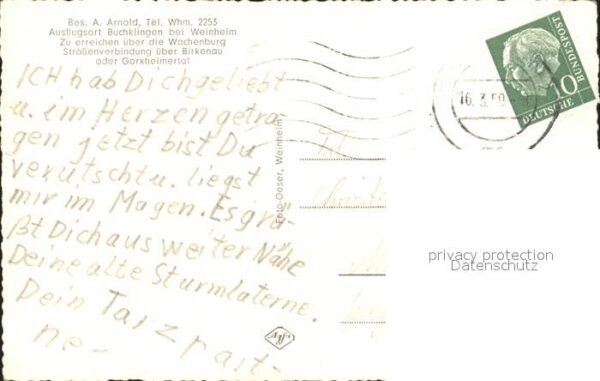 Bes. A. Arnold, Tel. Whm. 2253
Ausflugsort Buchklingen bei Weinheim
Zu erreichen über die Wachenburg
Straßenverbindung über Birkenau
oder Gorxheimertal
ICH hab Dich geliebt
u. im Herzen getra-
gen jetzt bist Du
verutscht u. liegst
mir im Magen. Es grä-
ßt Dich aus weiter Nähe
Deine alte Sturmlaterne.
Dein
ne-
Foto-Oeser, Weinheim
16.3.59
10
DEUTSCHE
BUNDESPOST
privacy protection
Datenschutz